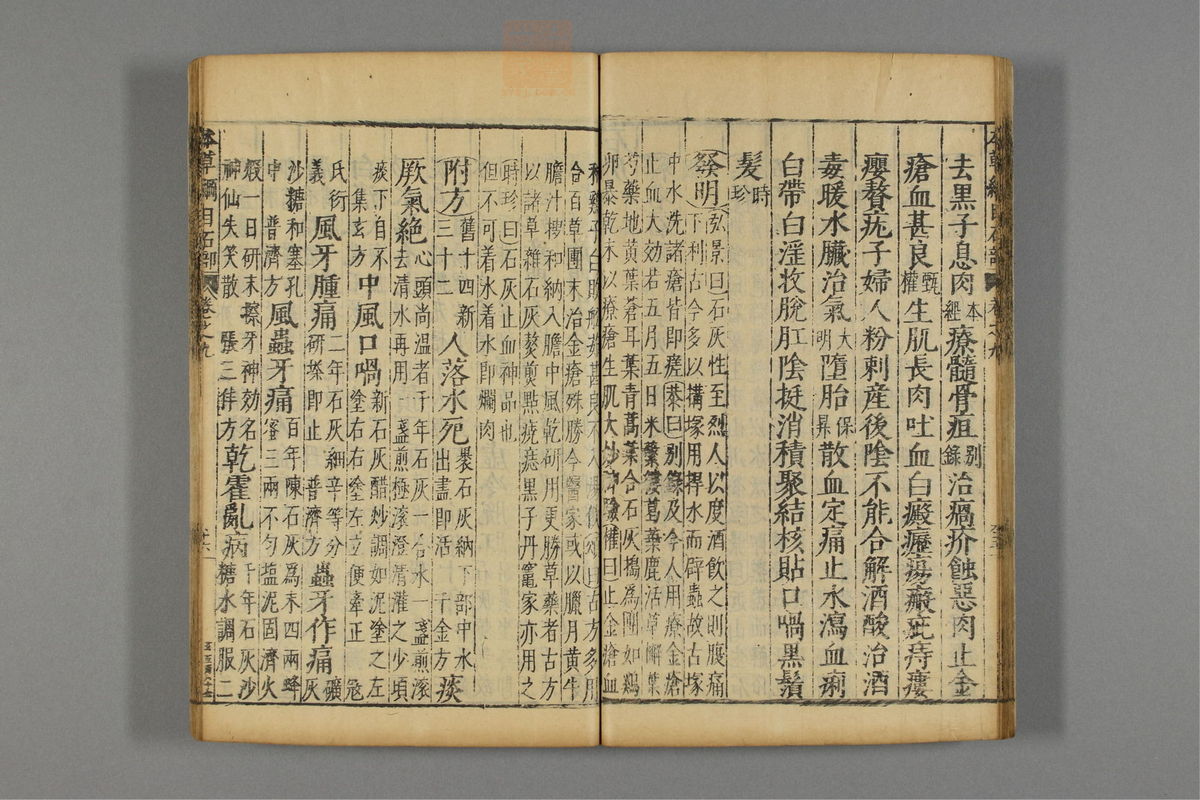 去黑子息肉本經療髓骨疽別錄治瘑疥蝕惡肉止金
瘡血甚良甄權生肌長肉吐血白癜癧瘍瘢疵痔瘻
癭贅疣子婦人粉刺產後陰不能合解酒酸治酒
毒暖水臟治氣大明墮胎保昇散血定痛止水瀉血痢
白帶白淫收脫肛陰挺消積聚結核貼口喎黑鬚
髮時珍
發明弘景曰石灰性至烈人以度酒飲之則腹痛
下利古今多以搆塚用捍水而辟蟲故古塚
中水洗諸瘡皆即瘥恭曰別錄及今人用療金瘡
止血大効若五月五日采蘩蔞葛葉鹿活草檞葉
芍藥地黃葉蒼耳葉青蒿葉合石灰搗為團如鷄
卵暴乾末以療瘡生肌大妙神驗權曰止金瘡血
和雞子白敗船茹甚良不入湯使頌曰古方多用
合百草團末治金瘡殊勝今醫家或以臘月黃牛
膽汁搜和納入膽中風乾研用更勝草藥者古方
以諸草雜石灰熬煎點疣痣黑子丹竈家亦用之
時珍曰石灰止血神品也
但不可着水着水即爛肉
附方舊十四新三十二人落水死裹石灰納下部中水出盡即活千金方痰
厥氣絕心頭尚溫者千年石灰一合水一盞煎滾去清水再用一盞煎極滾澄清灌之少頃
痰下自不集玄方中風口喎新石灰醋炒調如泥塗之左塗右右塗左立便牽正寇
氏衍義風牙腫痛二年石灰細辛等分研搽即止普濟方蟲牙作痛礦灰
沙糖和塞孔中普濟方風蟲牙痛百年陳石灰為末四兩蜂蜜三兩不勻塩泥固濟火
煅一日研末擦牙神効名神仙失笑散張三丰方乾霍亂病千年石灰沙糖水調服二
本草綱目石部 卷之九